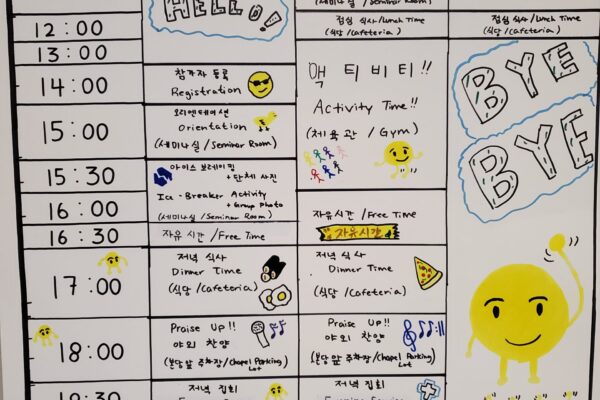 12:00
13:00
14:00
15:00
15:30
16:00
16:30
17:00
18:00
HELLO!
참가자 등록
Registration
오리엔테이션
Orientation
(세미나실/Seminar Room)
아이스 브레이킹
+단체 사진
Ice-Breaker Activity
+Group Photo
(세미나실/Seminar Room)
자유 시간/Free Time
저녁 식사
Dinner Time
(식당/Cafeteria)
Praise Up!!
야외 찬양
(본당 앞 주차장/Chapel Parking
Lot
저녁 집회
(세미나실/Seminar Room)
점심 식사/Lunch Time
(식당/Cafeteria)
액티비티!!
Activity Time!!
(체육관/Gym)
자유시간/Free Time
자유시간
저녁 식사
Dinner Time
(식당/Cafeteria)
Praise Up!!
야외 찬양
(본당 앞 주차장/Chapel Parking
Lot
저녁 집회
점심 식사/Lunch Time
(식당/Cafeteria)
BYE
BYE